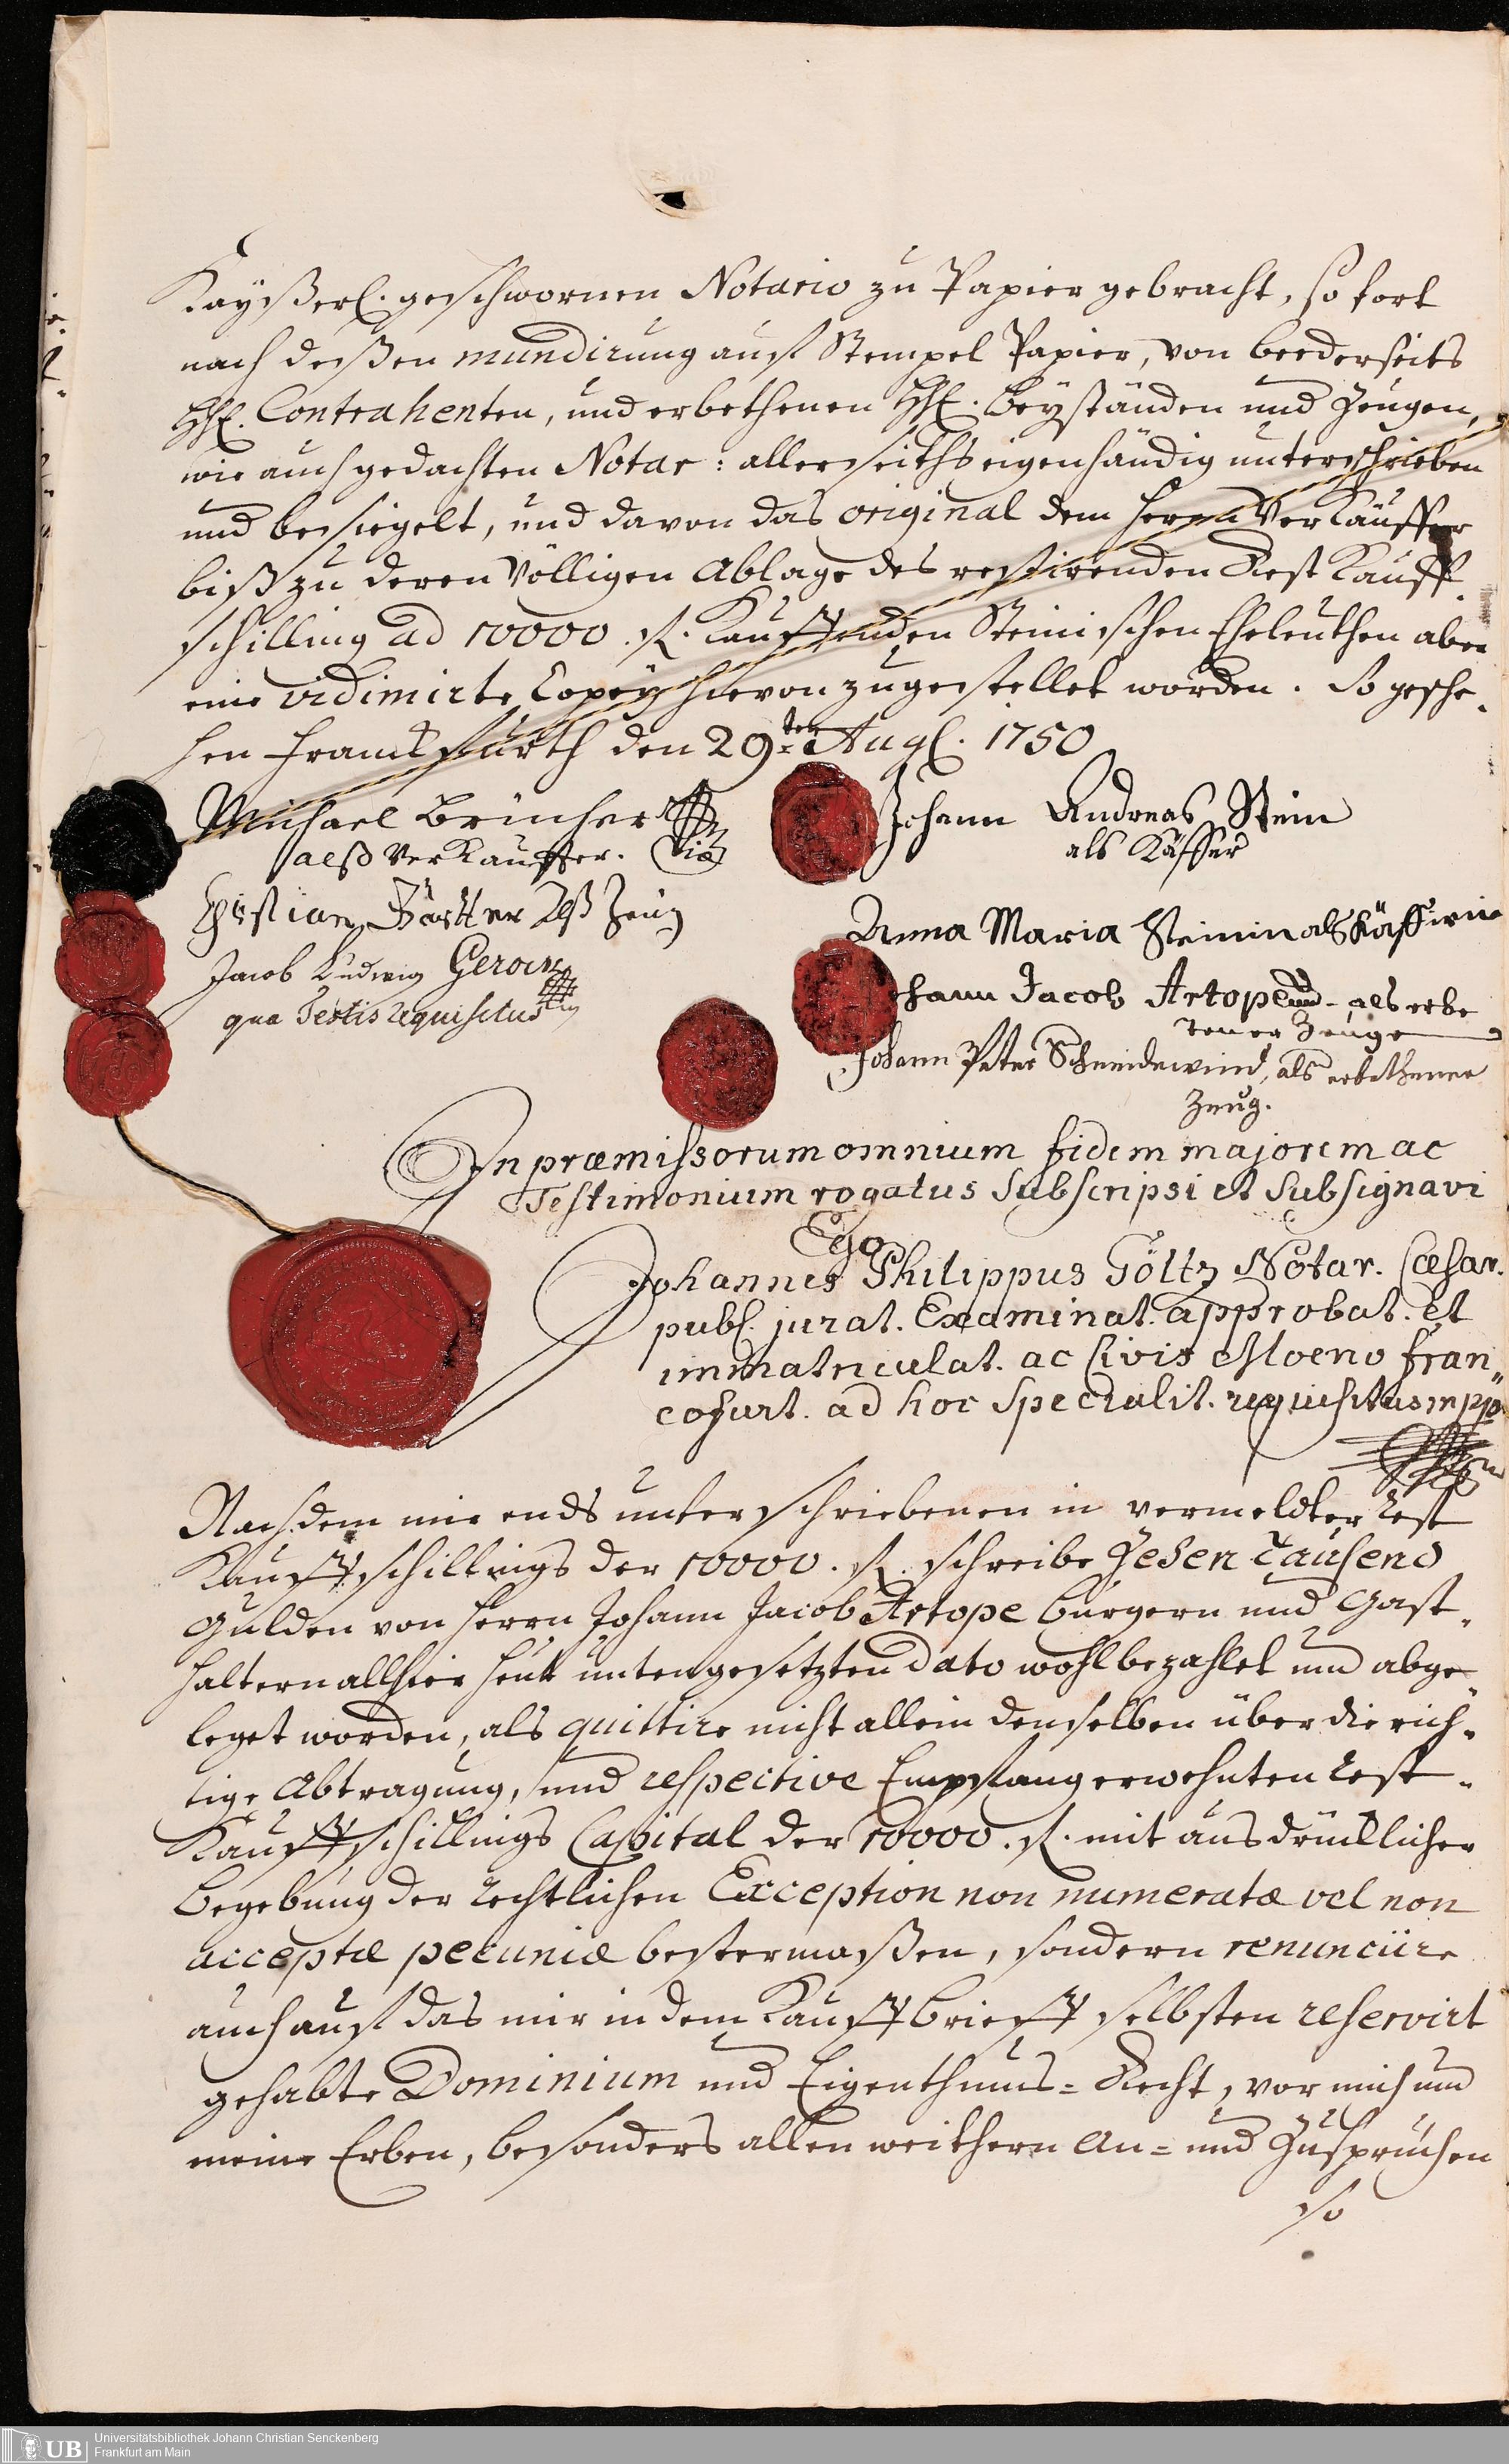 Kayßerl. geschwornen Notario zu Papier gebracht, so fort
nach deßen mundirung auf Stempel Papier, von beederseits
HH. Contrahenten, und erbethenen HH. Beyständen und Zeugen,
wie auch gedachten Notar: allerseiths eigenhändig unterschrieben
und besiegelt, und davon das original dem Herrn Verkäuffer
biß zu deren völligen Ablage des restirenden Rest Kauff
schilling ad 10000. fl. Kauffenden Steinischen Eheleuthen aber
eine vidimirte Copey hievon zugestellet worden. So gesche„
hen Franckfurth den 29ten Augl. 1750
Michael Brücher
alß Verkauffer.
Johann Andreas Stein
als Käffer
Christian Förtter Alß Zeug
Anna Maria Steinin als Käfferin
Jacob Ludwig
qua Testis requisitus
Johann Jacob Artope als erbe
tener Zeuge
Johann Peter Schneidewind, als erbethener
Zeug.
In præmissorum omnium fidem majorem ac
Testimonium rogatus subscripsi et subsignavi
Ego
Johannes Philippus Göltz Notar. Cæsar.
publ. jurat. Examinat. approbat. et
immatriculat. ac Civis Moeno fran„
cofurt. ad hoc specialit. requisitus mppr
Nachdem mir ends unterschriebenen in vermeldter Rest
Kauffschillings der 10000. fl. schreibe Zehen Tausend
Gulden von Herrn Johann Jacob Artope Burgern und Gast„
haltern allhier heut untengesetzten dato wohl bezahlet und abge„
leget worden, als quittire nicht allein denselben über die rich„
tige Abtragung, und respective Empfang erwehnten Rest„
Kauffschillings Capital der 10000. fl. mit ausdrücklicher
Begebung der rechtlichen Exception non numeratæ vel non
acceptæ pecuniæ bestermaßen, sondern renunciire
auch auf das mir in dem Kauffbrieff selbsten reservirt
gehabte Dominium und Eigenthums-Recht, vor mich und
meine Erben, besonders allen weithern An- und Zusprüchen
so
UB
Universitätsbibliothek Johann Christian Senckenberg
Frankfurt am Main